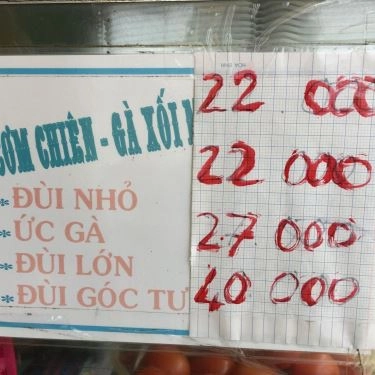 CƠM CHIÊN - GÀ XỐI
* ĐÙI NHỎ 22 000
* ỨC GÀ 22 000
* ĐÙI LỚN 27 000
* ĐÙI GÓC TƯ 40 000